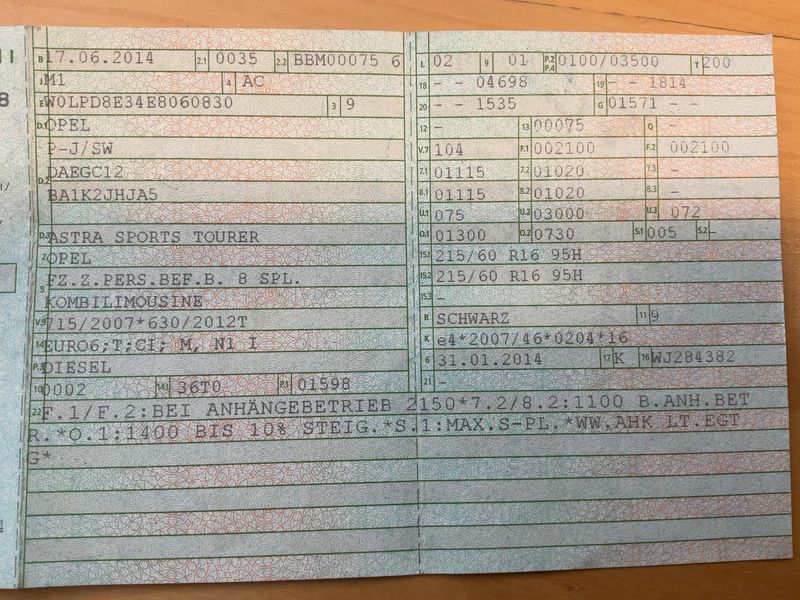 B 17.06.2014 2.1 0035 2.2 BBM00075 6
J M1 4 AC
E W0LPD8E34E8060830 3 9
D.1 OPEL
P-J/SW
D.2 DAEGC12
BA1K2JHJA5
D.3 ASTRA SPORTS TOURER
2 OPEL
5 FZ.Z.PERS.BEF.B. 8 SPL.
KOMBILIMOUSINE
V.9 715/2007*630/2012T
14 EURO6;T;CI; M, N1 I
P.3 DIESEL
10 0002 14.1 36T0 P.1 01598
L 02 9 01 P.2 P.4 0100/03500 T 200
18 - - 04698 19 - - 1814
20 - - 1535 G 01571 - -
12 - 13 00075 Q -
V.7 104 F.1 002100 F.2 002100
7.1 01115 7.2 01020 7.3 -
8.1 01115 8.2 01020 8.3 -
U.1 075 U.2 03000 U.3 072
O.1 01300 O.2 0730 S.1 005 S.2 -
15.1 215/60 R16 95H
15.2 215/60 R16 95H
15.3 -
R SCHWARZ 11 9
K e4*2007/46*0204*16
6 31.01.2014 17 K 16 WJ284382
21 -
22 F.1/F.2:BEI ANHÄNGEBETRIEB 2150*7.2/8.2:1100 B.ANH.BET
R.*O.1:1400 BIS 10% STEIG.*S.1:MAX.S-PL.*WW.AHK LT.EGT
G*